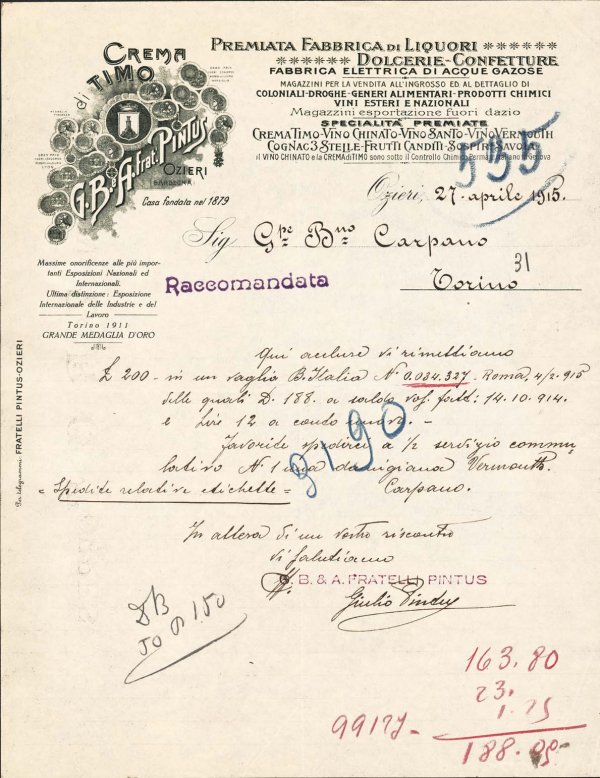 CREMA
di TIMO
G.B. e A. Frat. PINTUS
OZIERI
(SARDEGNA)
Casa fondata nel 1879
PREMIATA FABBRICA DI LIQUORI
DOLCERIE-CONFETTURE
FABBRICA ELETTRICA DI ACQUE GAZOSE
MAGAZZINI PER LA VENDITA ALL'INGROSSO ED AL DETTAGLIO DI
COLONIALI-DROGHE-GENERI ALIMENTARI-PRODOTTI CHIMICI
VINI ESTERI E NAZIONALI
Magazzini esportazione fuori dazio
SPECIALITÀ PREMIATE
CREMA TIMO-VINO CHINATO-VINO SANTO-VINO VERMOUTH
COGNAC 3 STELLE-FRUTTI CANDITI-SOSPIRI-SAVOIA
il VINO CHINATO e la CREMA di TIMO sono sotto il Controllo Chimico Perman. Italiano Genova
535
Ozieri, 27 aprile 1915.
Sig Gpe Bno Carpano
31
Torino
Raccomandata
Massime onorificenze alle più impor-
tanti Esposizioni Nazionali ed
Internazionali.
Ultima distinzione: Esposizione
Internazionale delle Industrie e del
Lavoro
Torino 1911
GRANDE MEDAGLIA D'ORO
Per telegrammi: FRATELLI PINTUS-OZIERI
Qui accluse vi rimettiamo
£ 200- in un vaglia B. Italia N. 0.034.327. Roma, 4/2 915
delle quali £. 188. a saldo vos. fatt: 14.10.914.
e Lire 12 a conto nuovo. -
Favorite spedirci a ½ servizio commu-
lativo N. 1 una damigiana Vermouth.
= Spedite relative etichette = Carpano.
9190
In attesa di un vostro riscontro
vi salutiamo
G. B. & A. FRATELLI PINTUS
Giulio Pintus
DB
50 1.50
163.80
23.
1.25
99177-
188.05